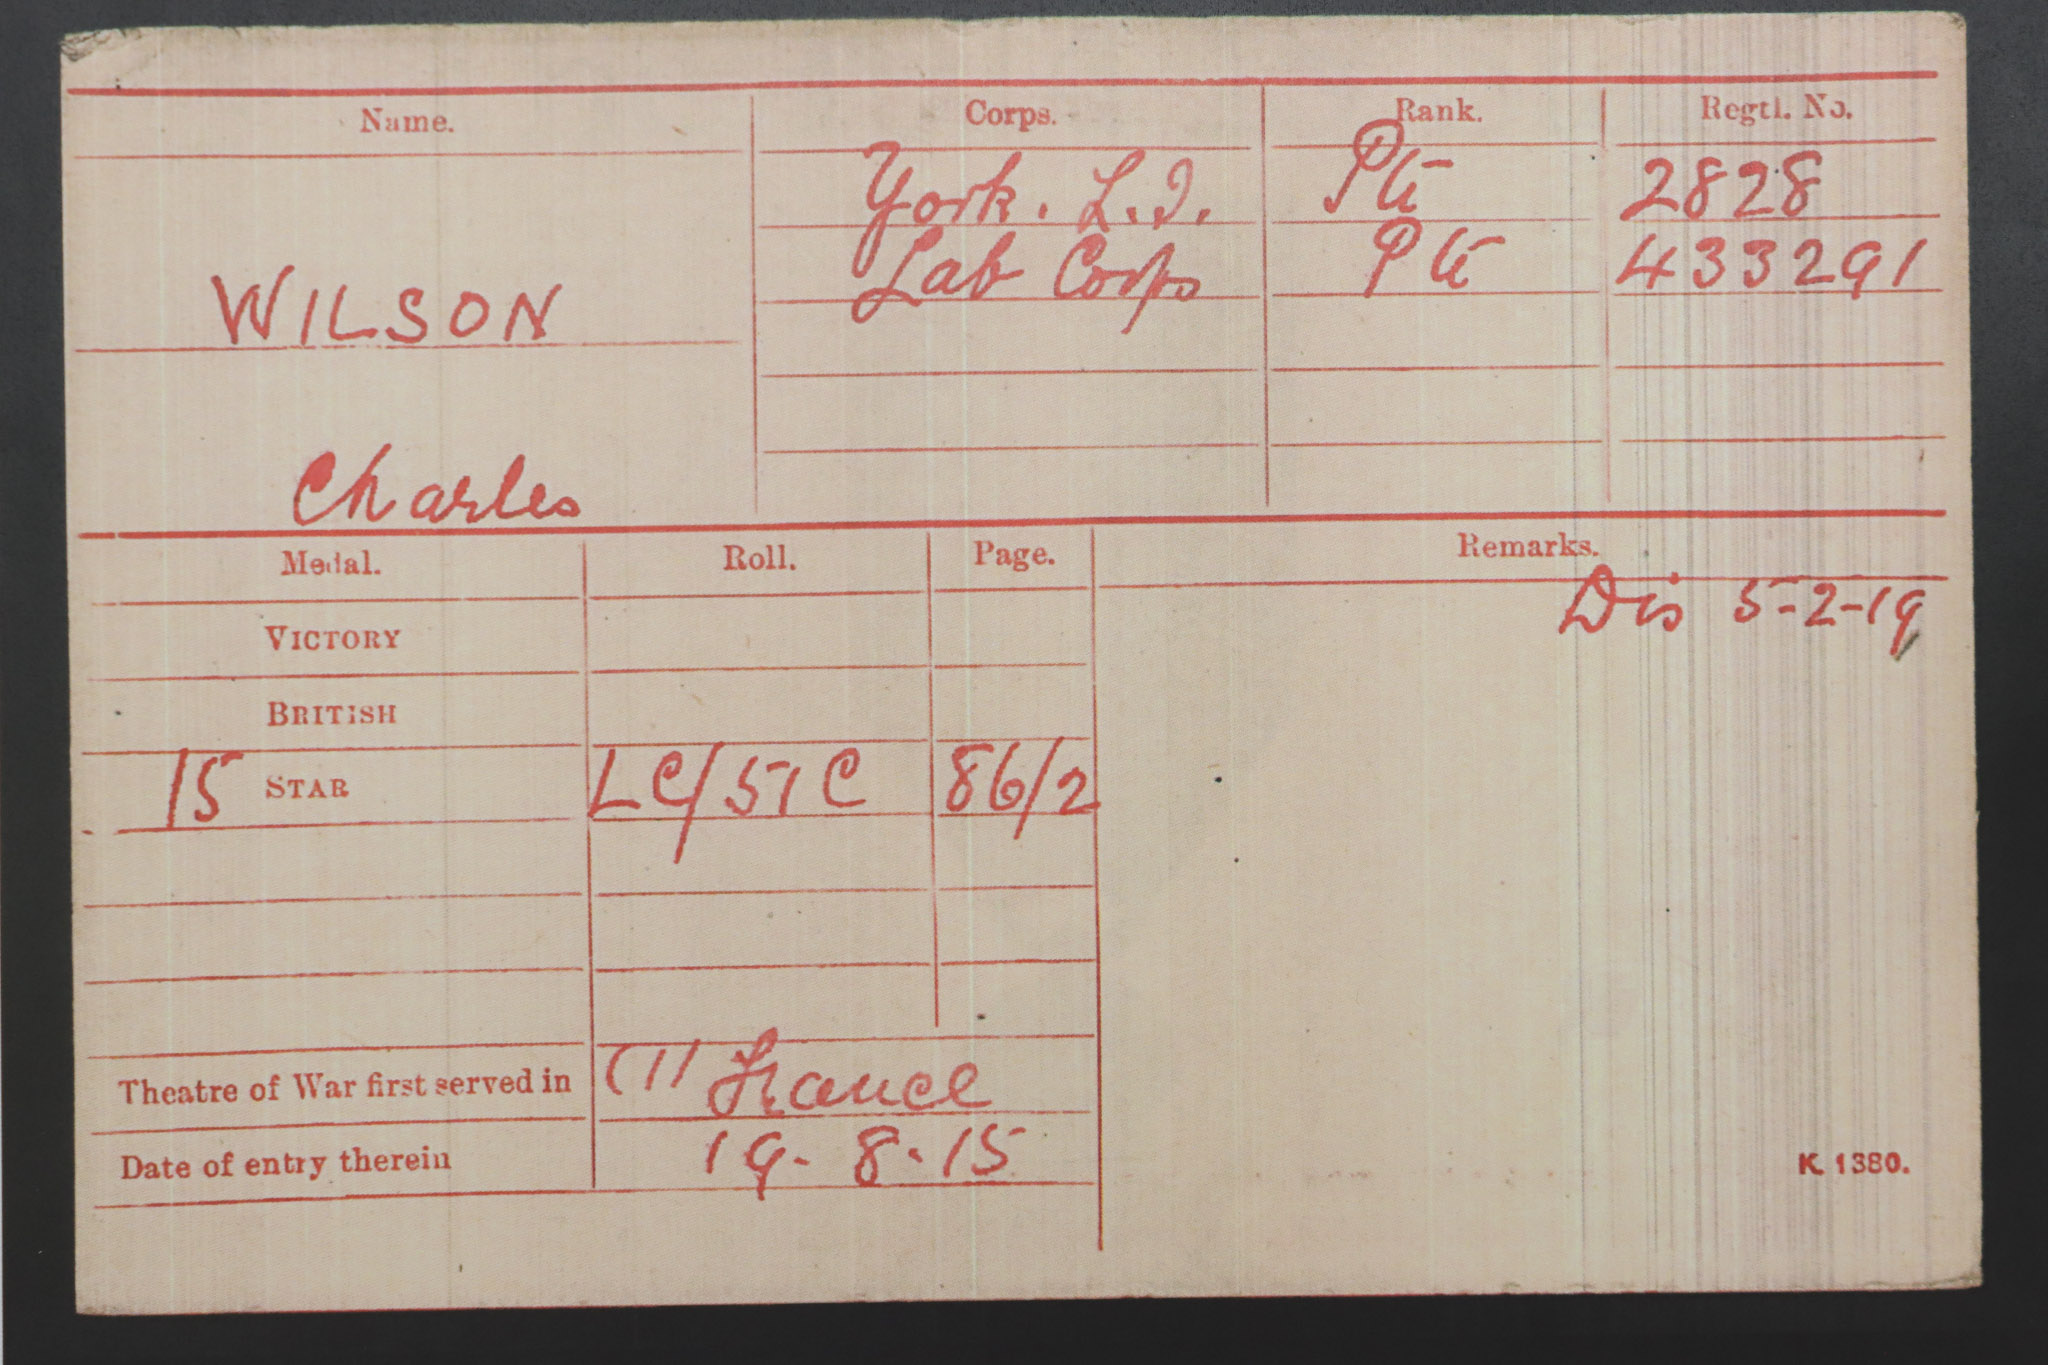 Name. Corps. Rank. Regtl. No.
York. L.I. Pte 2828
WILSON Lab Corps Pte 433291
Charles
Medal. Roll. Page. Remarks.
Dis 5-2-19
VICTORY
BRITISH
15 STAR LC/51C 86/2
Theatre of War first served in (1) France
Date of entry therein 19.8.15
K. 1380.